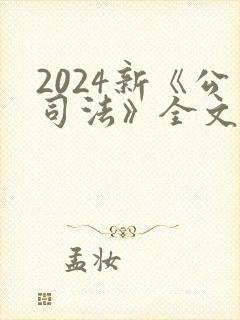 2024新《公
司法》全文
孟妆